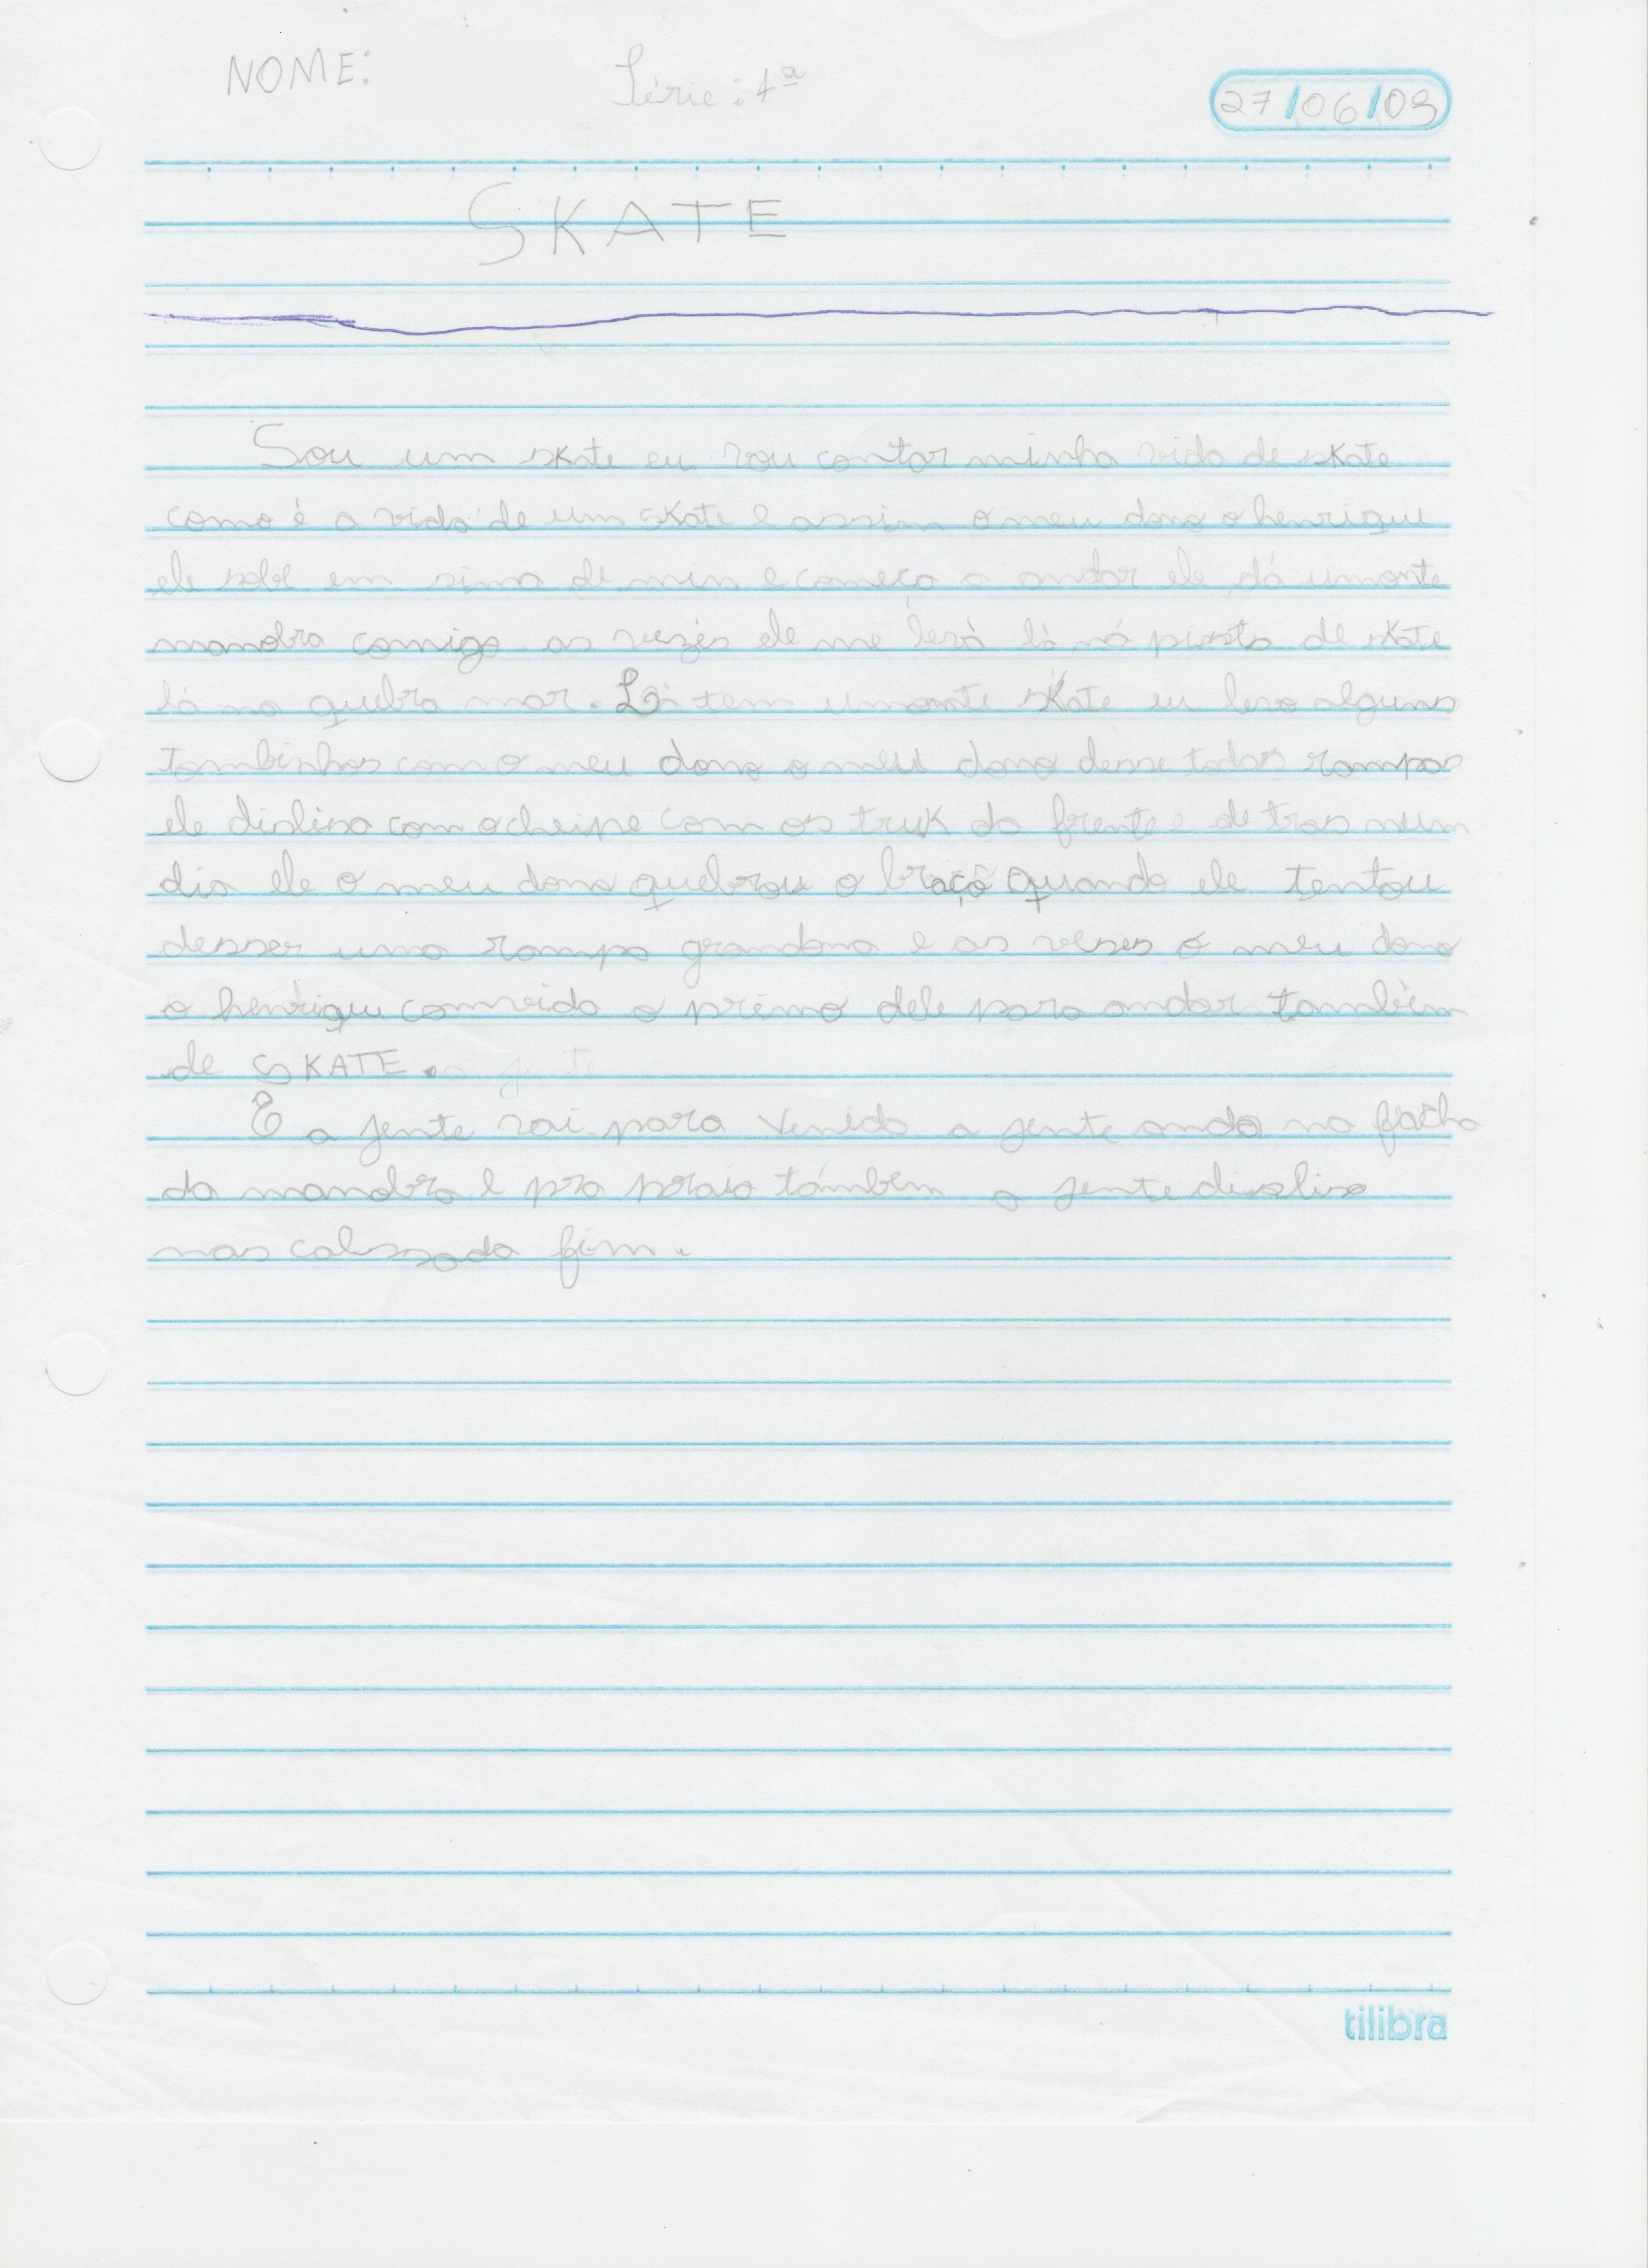 NOME: Série: 4ª 27/06/09
SKATE
Sou um skate eu vou contar minha vida de skate
como é a vida de um skate e assim o meu dono o henrique
ele sobe em sima de min e começa a andar ele dá umonte
manobra comigo as vezes ele me levá lá ná pista de skate
lá na quebra mar. Lá tem umonte skate eu levo alguns
tombinhos com o meu dono o meu dono desse todas rampas
ele disliza com o cheipe com os truk da frente e de tras num
dia ele o meu dono quebrou o braço quando ele tentou
desser uma rampa grandona e as veses o meu dono
o henrique convida o primo dele para andar também
de SKATE.
E a jente vai para venida a jente anda na facha
da manobra e pra praia também a jente disliza
nas calssada fim.
tilibra